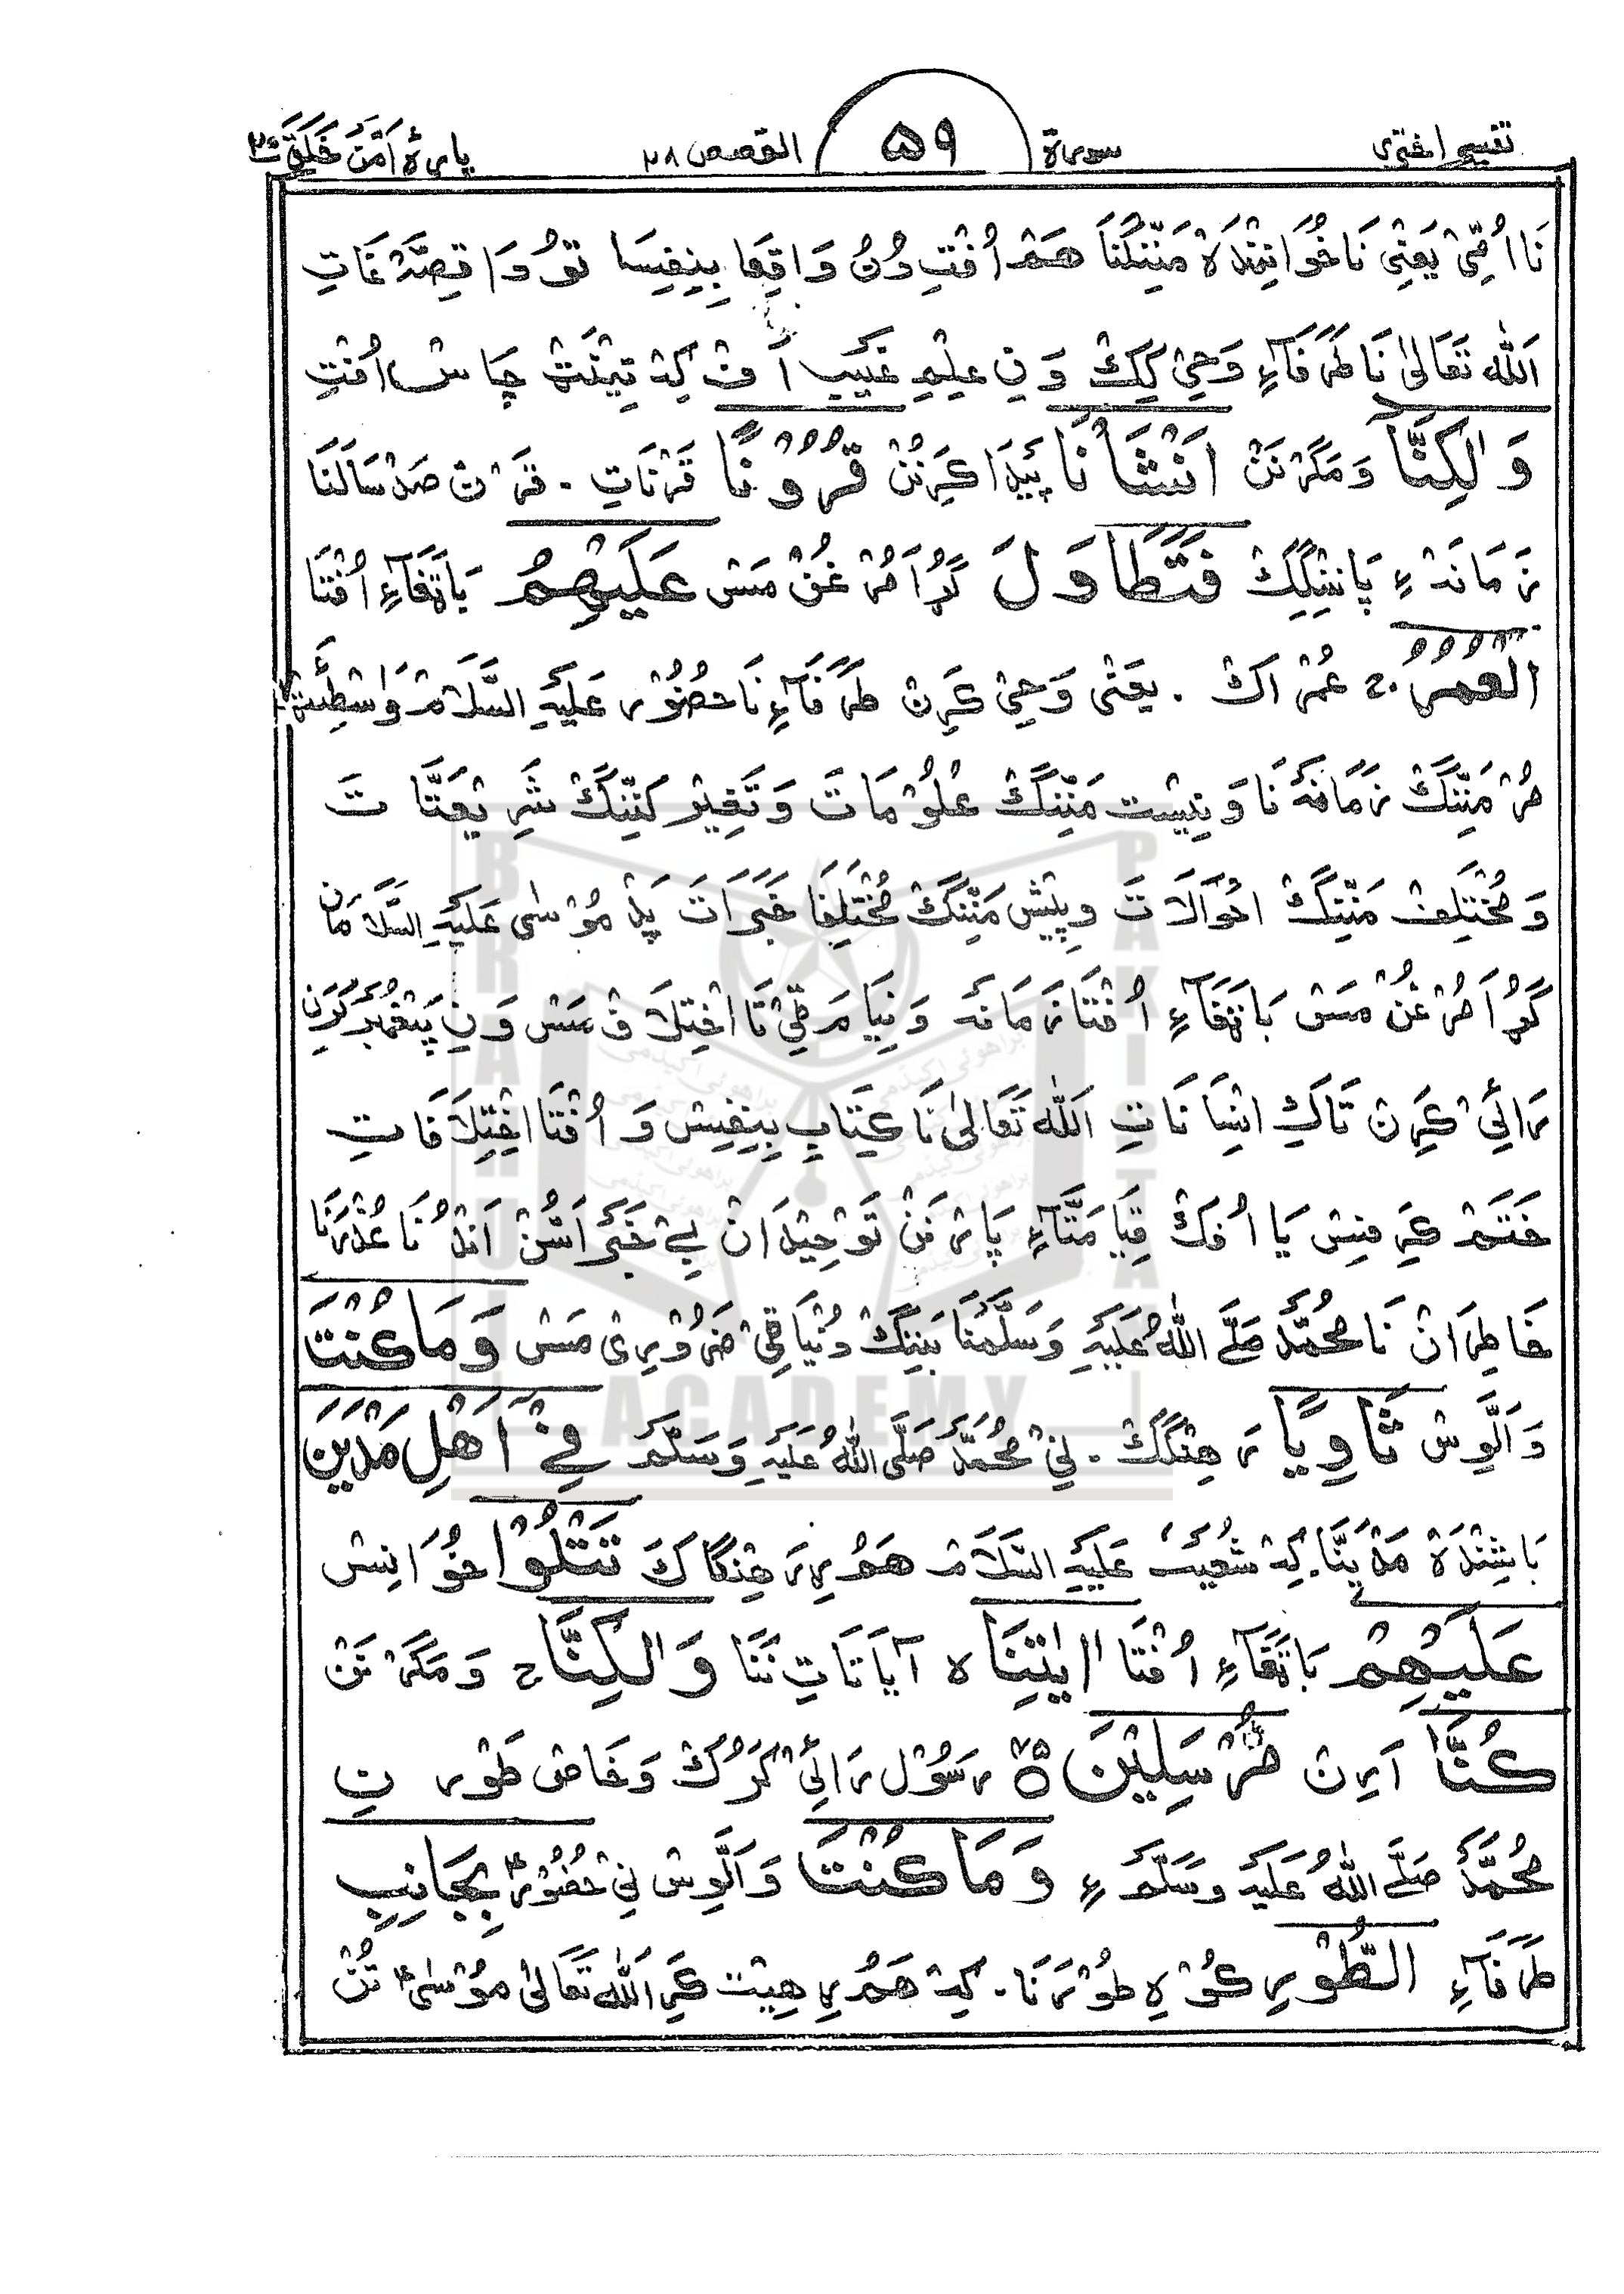 تفسیر اختری سورة ۵۹ القصص ۲۸ پارہ اَمَّنْ خَلَقَ ۲۰
نَا اُمِّیْ یَعْنِیْ نَا خُوَانِنْدَہ مَنِّنْگنَا هَمْ اُفْتِ دُنْ وَاقِعَا بِنِفِیسَا تُو دَا قِصَّہ غَاتِ
اَللّٰه تَعَالیٰ نَا طَرْفَآءِ وَحِیْ کِکْ وَنِ عِلِمِ غَیْبِ اَفْ کِہ تِیْنَتْ چَاسْ اُفْتِ
وَلٰکِنَّآ وَمَگَرْ نَنْ اَنْشَأْنَا پَیْدَا کَرِنُنْ قُرُوْنًا قَرْنَاتِ ۔ قَرْنْ صَدْ سَالَنَا
زَمَانَہْ ءِ پَانِنْگِکْ فَتَطَاوَلَ گَڑُا مُرْغُنْ مَسْ عَلَیْهِمُ بَاتَغَآءِ اُفْتَا
الْعُمُرُ ۚ عُمْرْ اَکْ ۔ یعْنٰی وَحِیْ کَرِنْ طَرْفَآءِ نَا حضُوْر عَلَیْهِ السَّلَامْ وَاسْطِئَتْ
مُرْ مَنِّنْگْ زَمَانَہ نَا وَنِیْسْت مَنِّنْگْ عُلُوْمَاتَ وَتَغِیْر کَنِّنْگْ شَرِیْعَتَاتَ
وَمُخْتَلِفْ مَنِّنْگْ احْوَالَاتَ وپِیْشْ مَنِّنْگْ مُخْتَلِفَا خَبَرَاتَ پَدْ مُوْسٰی عَلَیْهِ السَّلَامَانْ
گَڑُا مُرْغُنْ مَسْ بَاتَغَآءِ اُفْتَا زَمَانَہ وَنِیَامَ ٹِیْ تَا اخْتِلَافْ مَسْ وَنِ پَیْغَمْبَرْ کَرِنْ
رَائِیْ کَرِنْ تَاکِ انْسَانَاتِ اَللّٰه تَعَالیٰ نَا کِتَابِ بِنِفِیْسْ وَ اُفْتَا اخْتِلَافَاتِ
خَتَمْ کَرِفِیْسْ یَا اُفْکْ قِیَامَتَآءِ پَارْ نَنْ تَوْحِیْدَانْ بے خَبَرْ اَسُّنْ اَنْدُنَا عُذْرَنَا
خَاطِرَانْ نَا مُحَمَّدْ صَلَّے اللّٰهُ عَلَیْهِ وَسَلَّمَنَا بَنِنْگْ دُنْیَا ٹِیْ ضَرُوْرِیْ مَسْ وَمَا کُنْتَ
وَاَلَّوِسْ ثَاوِیًا رَهِنْگکْ ۔ نِیْ مُحَمَّدْ صَلَّی اللّٰهُ عَلَیْهِ وَسَلَّمَ فِیْٓ اَهْلِ مَدْیَنَ
بَاشِنْدَہ مَدْیَنَّا ۔ کِہ شُعَیْبْ عَلَیْهِ السَّلَامْ هَمُرِ رَهِنْگَاکَ تَتْلُوْا خُوَانِسْ
عَلَیْهِمْ بَاتَغَآءِ اُفْتَا اٰیٰتِنَا ہ آیَاتَاتِ نَنَا وَلٰکِنَّا ۚ وَمَگَرْ نَنْ
کُنَّا اَرِنْ مُرْسَلِیْنَ ۴۵ رَسُوْل رَائِیْ کَرُکْ وَخَاصْ طَوْر تِ
مُحَمَّدْ صَلَّے اللّٰهُ عَلَیْهِ وَسَلَّمَ ءِ وَمَا کُنْتَ وَاَلَّوِسْ نِیْ حُضُوْرؐ بِجَانِبِ
طَرْفَآءِ الطُّوْرِ کُوْہِ طُوْرَنَا ۔ کِہ هَمُرِ هِیْت کَرِ اَللّٰه تَعَالیٰ مُوْسٰیؑ تُنْ
BRAHUI
ACADEMY
PAKISTAN
براهوئی اکیڈمی